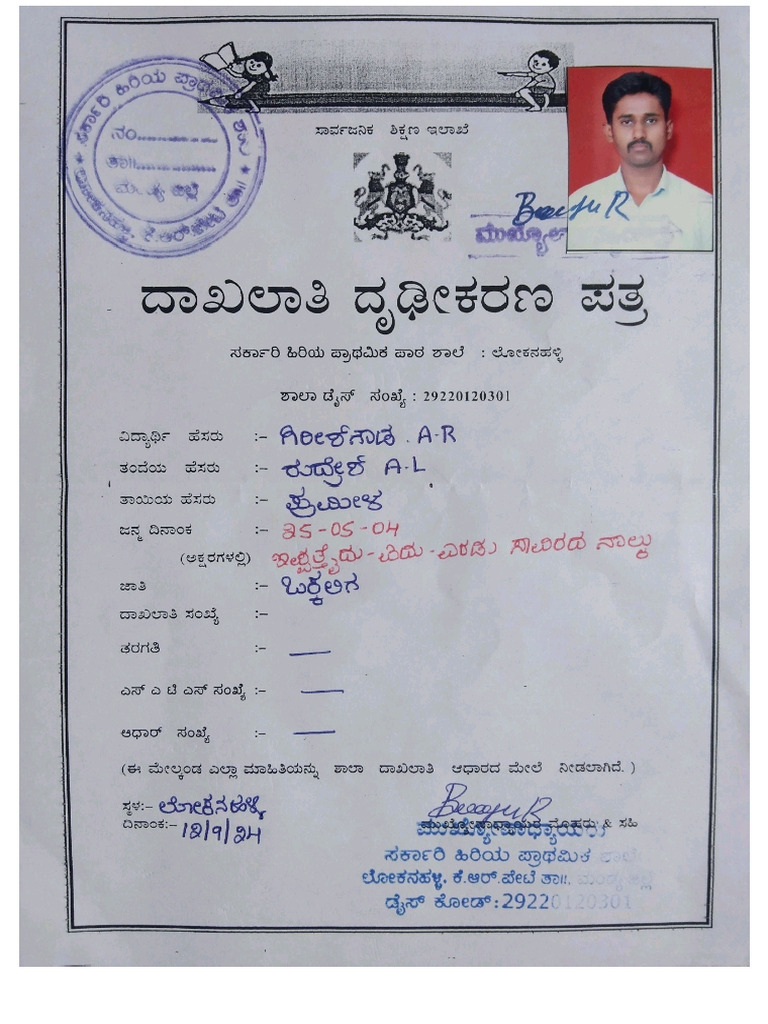 ಸಾರ್ವಜನಿಕ ಶಿಕ್ಷಣ ಇಲಾಖೆ
ಸರ್ಕಾರಿ ಹಿರಿಯ ಪ್ರಾಥಮಿಕ
ನಂ.................
ತಾ॥.................
ಕೆ.ಆರ್.ಪೇಟೆ ತಾ॥
ದಾಖಲಾತಿ ದೃಢೀಕರಣ ಪತ್ರ
ಸರ್ಕಾರಿ ಹಿರಿಯ ಪ್ರಾಥಮಿಕ ಪಾಠ ಶಾಲೆ : ಲೋಕನಹಳ್ಳಿ
ಶಾಲಾ ಡೈಸ್ ಸಂಖ್ಯೆ : 29220120301
ವಿದ್ಯಾರ್ಥಿ ಹೆಸರು :- ಗಿರೀಶ್‌ಗೌಡ . A-R
ತಂದೆಯ ಹೆಸರು :- ರುದ್ರೇಶ್ A.L
ತಾಯಿಯ ಹೆಸರು :- ಪ್ರಮೀಳ
ಜನ್ಮ ದಿನಾಂಕ :- 25-05-04
(ಅಕ್ಷರಗಳಲ್ಲಿ) ಇಪ್ಪತ್ತೈದು-ಮೇ-ಎರಡು ಸಾವಿರದ ನಾಲ್ಕು
ಜಾತಿ :- ಒಕ್ಕಲಿಗ
ದಾಖಲಾತಿ ಸಂಖ್ಯೆ :-
ತರಗತಿ :- —
ಎಸ್ ಎ ಟಿ ಎಸ್ ಸಂಖ್ಯೆ :- —
ಆಧಾರ್ ಸಂಖ್ಯೆ :- —
(ಈ ಮೇಲ್ಕಂಡ ಎಲ್ಲಾ ಮಾಹಿತಿಯನ್ನು ಶಾಲಾ ದಾಖಲಾತಿ ಆಧಾರದ ಮೇಲೆ ನೀಡಲಾಗಿದೆ. )
ಸ್ಥಳ:- ಲೋಕನಹಳ್ಳಿ
ದಿನಾಂಕ:- 12/9/24
ಮುಖ್ಯೋಪಾಧ್ಯಾಯರ ಮೊಹರು & ಸಹಿ
ಮುಖ್ಯೋಪಾಧ್ಯಾಯರು
ಸರ್ಕಾರಿ ಹಿರಿಯ ಪ್ರಾಥಮಿಕ ಶಾಲೆ
ಲೋಕನಹಳ್ಳಿ, ಕೆ.ಆರ್.ಪೇಟೆ ತಾ॥, ಮಂಡ್ಯ ಜಿಲ್ಲೆ
ಡೈಸ್ ಕೋಡ್:29220120301